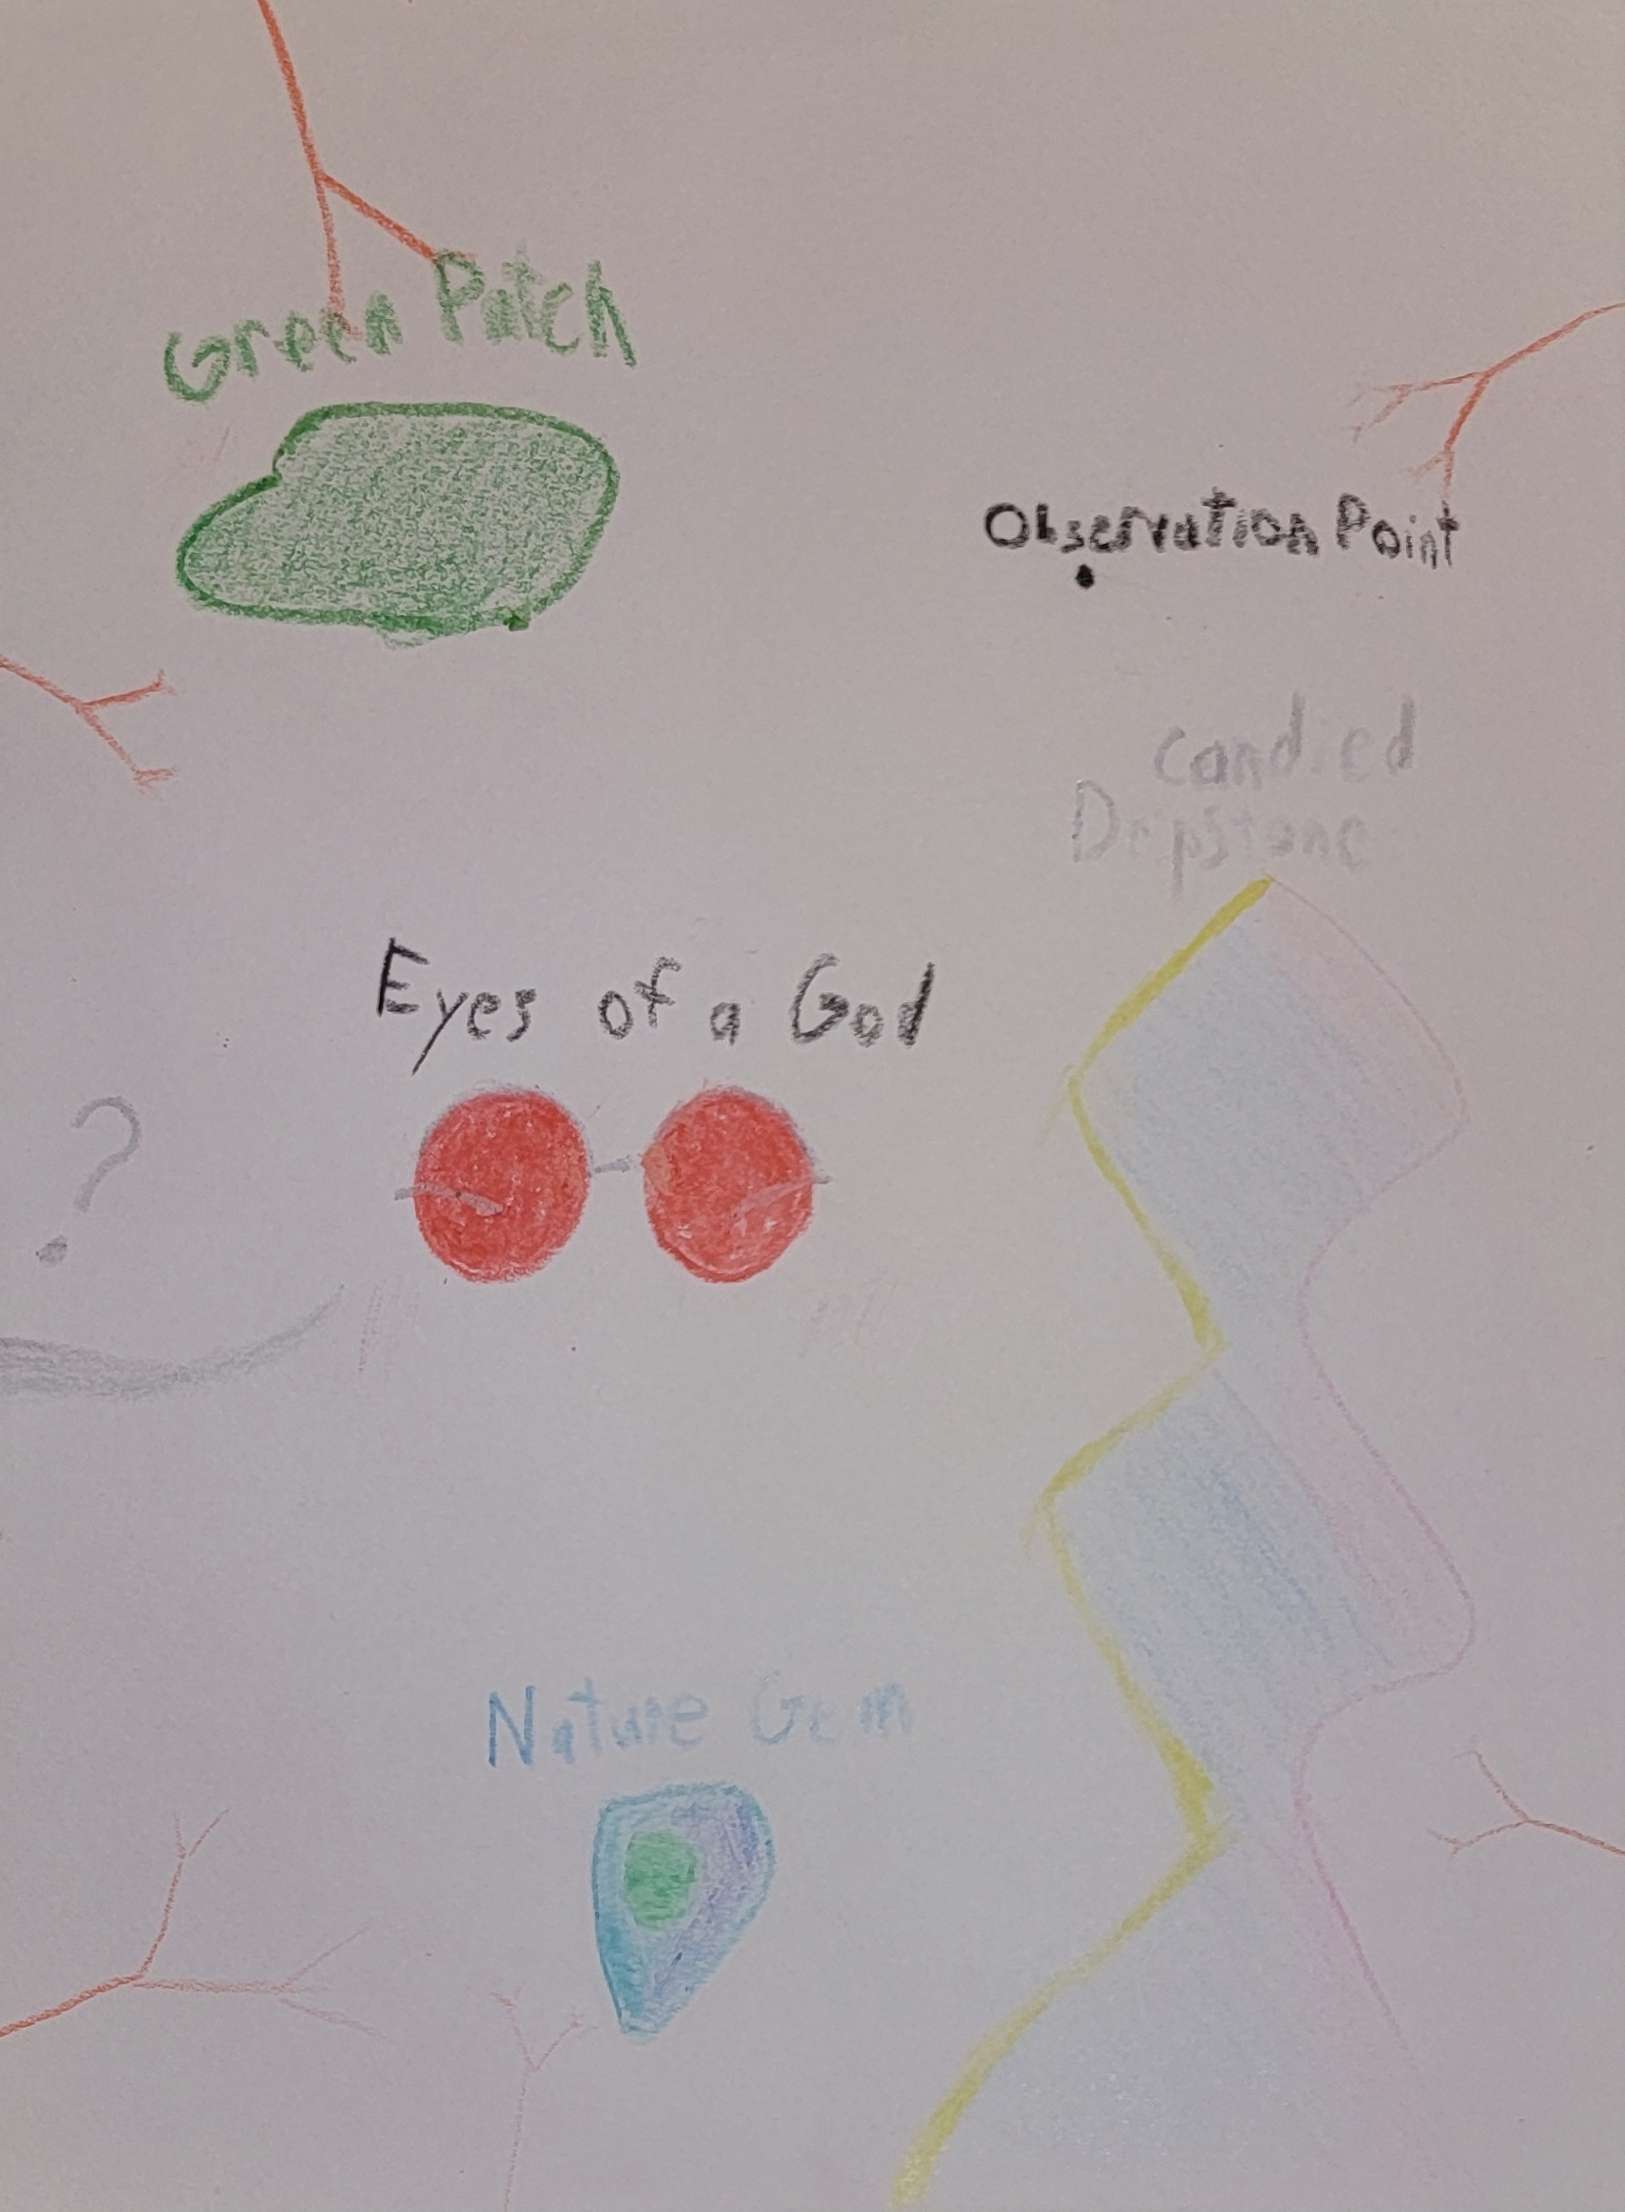 Green Patch
Observation Point
Candied
Dripstone
Eyes of a God
?
Nature Gem